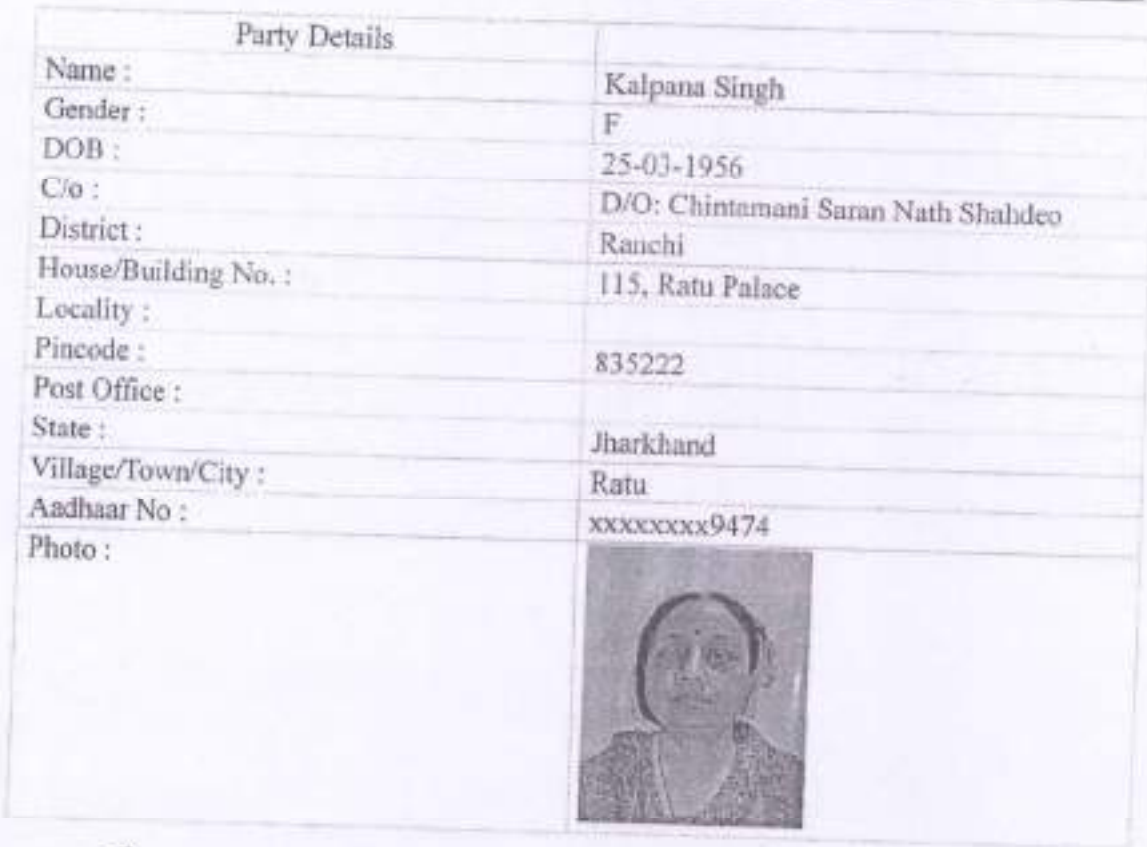 Party Details
Name : Kalpana Singh
Gender : F
DOB : 25-03-1956
C/o : D/O: Chintamani Saran Nath Shahdeo
District : Ranchi
House/Building No. : 115, Ratu Palace
Locality :
Pincode : 835222
Post Office :
State : Jharkhand
Village/Town/City : Ratu
Aadhaar No : xxxxxxxx9474
Photo :